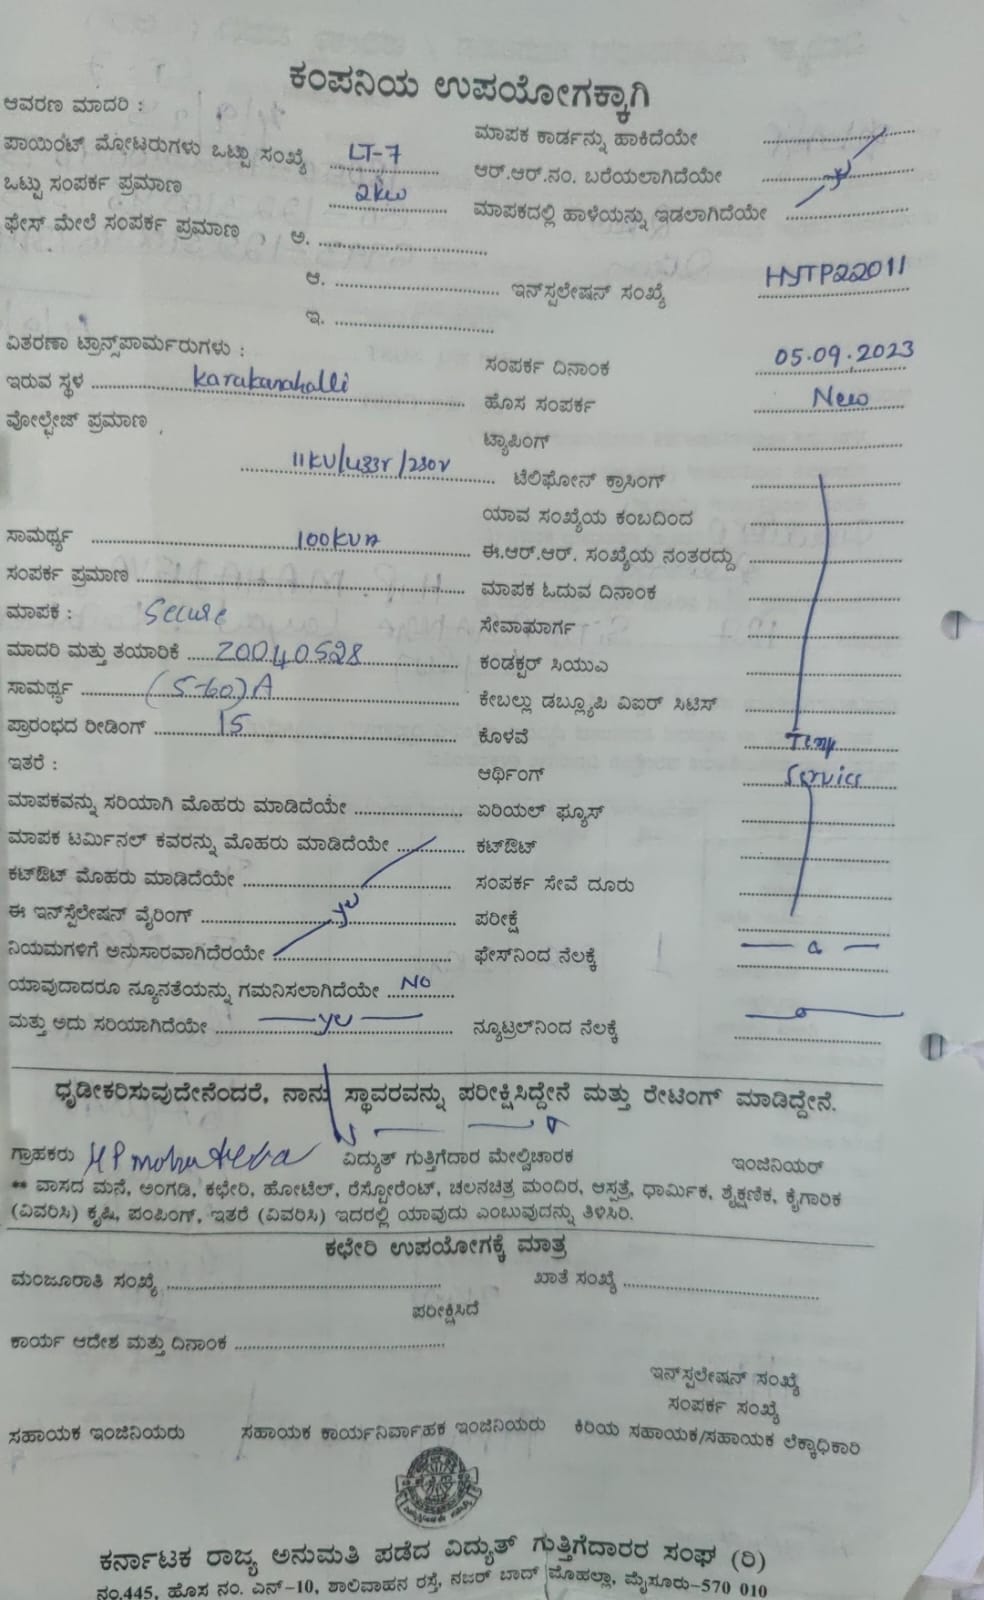 ಕಂಪನಿಯ ಉಪಯೋಗಕ್ಕಾಗಿ
ಆವರಣ ಮಾದರಿ :
ಪಾಯಿಂಟ್ ಮೋಟರುಗಳು ಒಟ್ಟು ಸಂಖ್ಯೆ LT-7
ಒಟ್ಟು ಸಂಪರ್ಕ ಪ್ರಮಾಣ 2kw
ಫೇಸ್ ಮೇಲೆ ಸಂಪರ್ಕ ಪ್ರಮಾಣ ಅ. ....................
ಆ. ....................
ಇ. ....................
ಮಾಪಕ ಕಾರ್ಡನ್ನು ಹಾಕಿದೆಯೇ ....................
ಆರ್.ಆರ್.ನಂ. ಬರೆಯಲಾಗಿದೆಯೇ ....................
ಮಾಪಕದಲ್ಲಿ ಹಾಳೆಯನ್ನು ಇಡಲಾಗಿದೆಯೇ ....................
ಇನ್‌ಸ್ಪಲೇಷನ್ ಸಂಖ್ಯೆ HYTP22011
ವಿತರಣಾ ಟ್ರಾನ್ಸ್‌ಪಾರ್ಮರುಗಳು :
ಇರುವ ಸ್ಥಳ Karakanahalli
ವೋಲ್ಟೇಜ್ ಪ್ರಮಾಣ
11KV/433V/230V
ಸಾಮರ್ಥ್ಯ 100KVA
ಸಂಪರ್ಕ ಪ್ರಮಾಣ ....................
ಮಾಪಕ : Secure
ಮಾದರಿ ಮತ್ತು ತಯಾರಿಕೆ 20040528
ಸಾಮರ್ಥ್ಯ (5-60)A
ಪ್ರಾರಂಭದ ರೀಡಿಂಗ್ 15
ಇತರೆ :
ಮಾಪಕವನ್ನು ಸರಿಯಾಗಿ ಮೊಹರು ಮಾಡಿದೆಯೇ ....................
ಮಾಪಕ ಟರ್ಮಿನಲ್ ಕವರನ್ನು ಮೊಹರು ಮಾಡಿದೆಯೇ ............
ಕಟ್‌ಔಟ್ ಮೊಹರು ಮಾಡಿದೆಯೇ ....................
ಈ ಇನ್‌ಸ್ಪೆಲೇಷನ್ ವೈರಿಂಗ್ ....................
ನಿಯಮಗಳಿಗೆ ಅನುಸಾರವಾಗಿದೆರಯೇ ....................
ಯಾವುದಾದರೂ ನ್ಯೂನತೆಯನ್ನು ಗಮನಿಸಲಾಗಿದೆಯೇ NO
ಮತ್ತು ಅದು ಸರಿಯಾಗಿದೆಯೇ ....................
ಸಂಪರ್ಕ ದಿನಾಂಕ 05.09.2023
ಹೊಸ ಸಂಪರ್ಕ New
ಟ್ಯಾಪಿಂಗ್ ....................
ಟೆಲಿಫೋನ್ ಕ್ರಾಸಿಂಗ್ ....................
ಯಾವ ಸಂಖ್ಯೆಯ ಕಂಬದಿಂದ ....................
ಈ.ಆರ್.ಆರ್. ಸಂಖ್ಯೆಯ ನಂತರದ್ದು ....................
ಮಾಪಕ ಓದುವ ದಿನಾಂಕ ....................
ಸೇವಾಮಾರ್ಗ ....................
ಕಂಡಕ್ಟರ್ ಸಿಯುಎ ....................
ಕೇಬಲ್ಲು ಡಬ್ಲ್ಯೂಪಿ ವಿಐರ್ ಸಿಟಿಸ್ ....................
ಕೊಳವೆ Temp
ಆರ್ಥಿಂಗ್ Service
ಏರಿಯಲ್ ಫ್ಯೂಸ್ ....................
ಕಟ್‌ಔಟ್ ....................
ಸಂಪರ್ಕ ಸೇವೆ ದೂರು ....................
ಪರೀಕ್ಷೆ ....................
ಫೇಸ್‌ನಿಂದ ನೆಲಕ್ಕೆ ....................
ನ್ಯೂಟ್ರಲ್‌ನಿಂದ ನೆಲಕ್ಕೆ ....................
ಧೃಡೀಕರಿಸುವುದೇನೆಂದರೆ, ನಾನು ಸ್ಥಾವರವನ್ನು ಪರೀಕ್ಷಿಸಿದ್ದೇನೆ ಮತ್ತು ರೇಟಿಂಗ್ ಮಾಡಿದ್ದೇನೆ.
ಗ್ರಾಹಕರು ವಿದ್ಯುತ್ ಗುತ್ತಿಗೆದಾರ ಮೇಲ್ವಿಚಾರಕ ಇಂಜಿನಿಯರ್
** ವಾಸದ ಮನೆ, ಅಂಗಡಿ, ಕಛೇರಿ, ಹೋಟೆಲ್, ರೆಸ್ಟೋರೆಂಟ್, ಚಲನಚಿತ್ರ ಮಂದಿರ, ಆಸ್ಪತ್ರೆ, ಧಾರ್ಮಿಕ, ಶೈಕ್ಷಣಿಕ, ಕೈಗಾರಿಕ
(ವಿವರಿಸಿ) ಕೃಷಿ, ಪಂಪಿಂಗ್, ಇತರೆ (ವಿವರಿಸಿ) ಇದರಲ್ಲಿ ಯಾವುದು ಎಂಬುವುದನ್ನು ತಿಳಿಸಿರಿ.
ಕಛೇರಿ ಉಪಯೋಗಕ್ಕೆ ಮಾತ್ರ
ಮಂಜೂರಾತಿ ಸಂಖ್ಯೆ .................... ಖಾತೆ ಸಂಖ್ಯೆ ....................
ಪರೀಕ್ಷಿಸಿದೆ
ಕಾರ್ಯ ಆದೇಶ ಮತ್ತು ದಿನಾಂಕ ....................
ಇನ್‌ಸ್ಪಲೇಷನ್ ಸಂಖ್ಯೆ
ಸಂಪರ್ಕ ಸಂಖ್ಯೆ
ಸಹಾಯಕ ಇಂಜಿನಿಯರು ಸಹಾಯಕ ಕಾರ್ಯನಿರ್ವಾಹಕ ಇಂಜಿನಿಯರು ಕಿರಿಯ ಸಹಾಯಕ/ಸಹಾಯಕ ಲೆಕ್ಕಾಧಿಕಾರಿ
ಕರ್ನಾಟಕ ರಾಜ್ಯ ಅನುಮತಿ ಪಡೆದ ವಿದ್ಯುತ್ ಗುತ್ತಿಗೆದಾರರ ಸಂಘ (ರಿ)
ನಂ.445, ಹೊಸ ನಂ. ಎನ್-10, ಶಾಲಿವಾಹನ ರಸ್ತೆ, ನಜರ್ ಬಾದ್ ಮೊಹಲ್ಲಾ, ಮೈಸೂರು-570 010